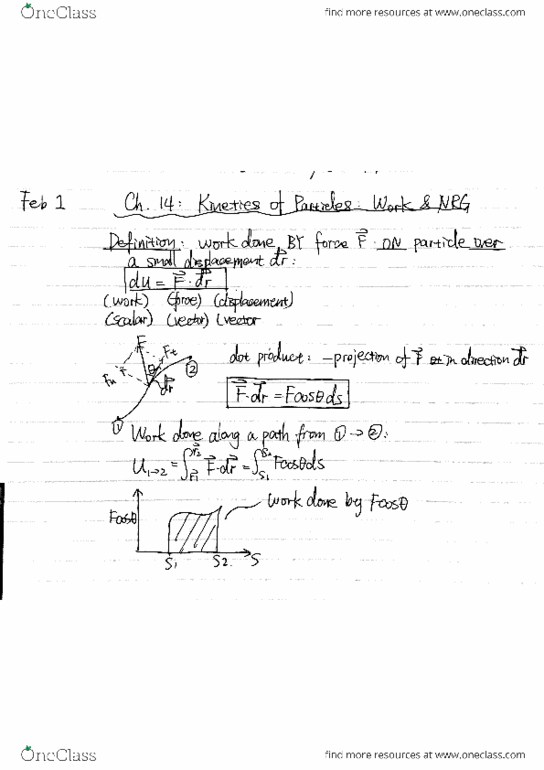 OneClass
find more resources at www.oneclass.com
Feb 1 Ch. 14: Kinetics of Particles: Work & NRG
Definition: work done BY force F⃗ ON particle over
a small displacement dr⃗:
dU = F⃗·dr⃗
(work) (force) (displacement)
(scalar) (vector) (vector
F
Ft
Fn
θ
dr⃗
②
①
dot product: – projection of F⃗ in direction dr⃗
F⃗·dr⃗ = Fcosθds
Work done along a path from ① → ②:
U₁→₂ = ∫r⃗₁^r⃗₂ F⃗·dr⃗ = ∫s₁^s₂ Fcosθds
Fcosθ
work done by Fcosθ
S₁ S₂ S
OneClass
find more resources at www.oneclass.com